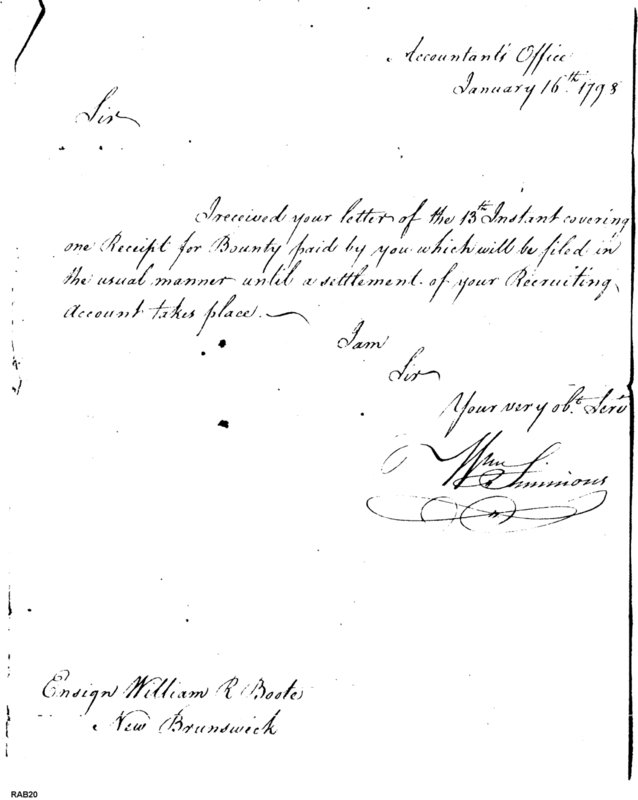 Accountant's Office
January 16th. 1798
Sir
I received your letter of the 13th Instant covering
one Receipt for Bounty paid by you which will be filed in
the usual manner until a settlement of your Recruiting
Account takes place.—
I am
Sir
Your very obt. Servt
Wm Simmons
Ensign William R Boote
New Brunswick
RAB20